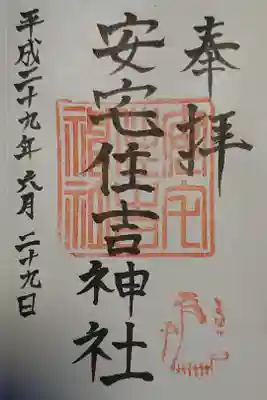 奉拝
安宅住吉神社
平成二十九年六月二十九日